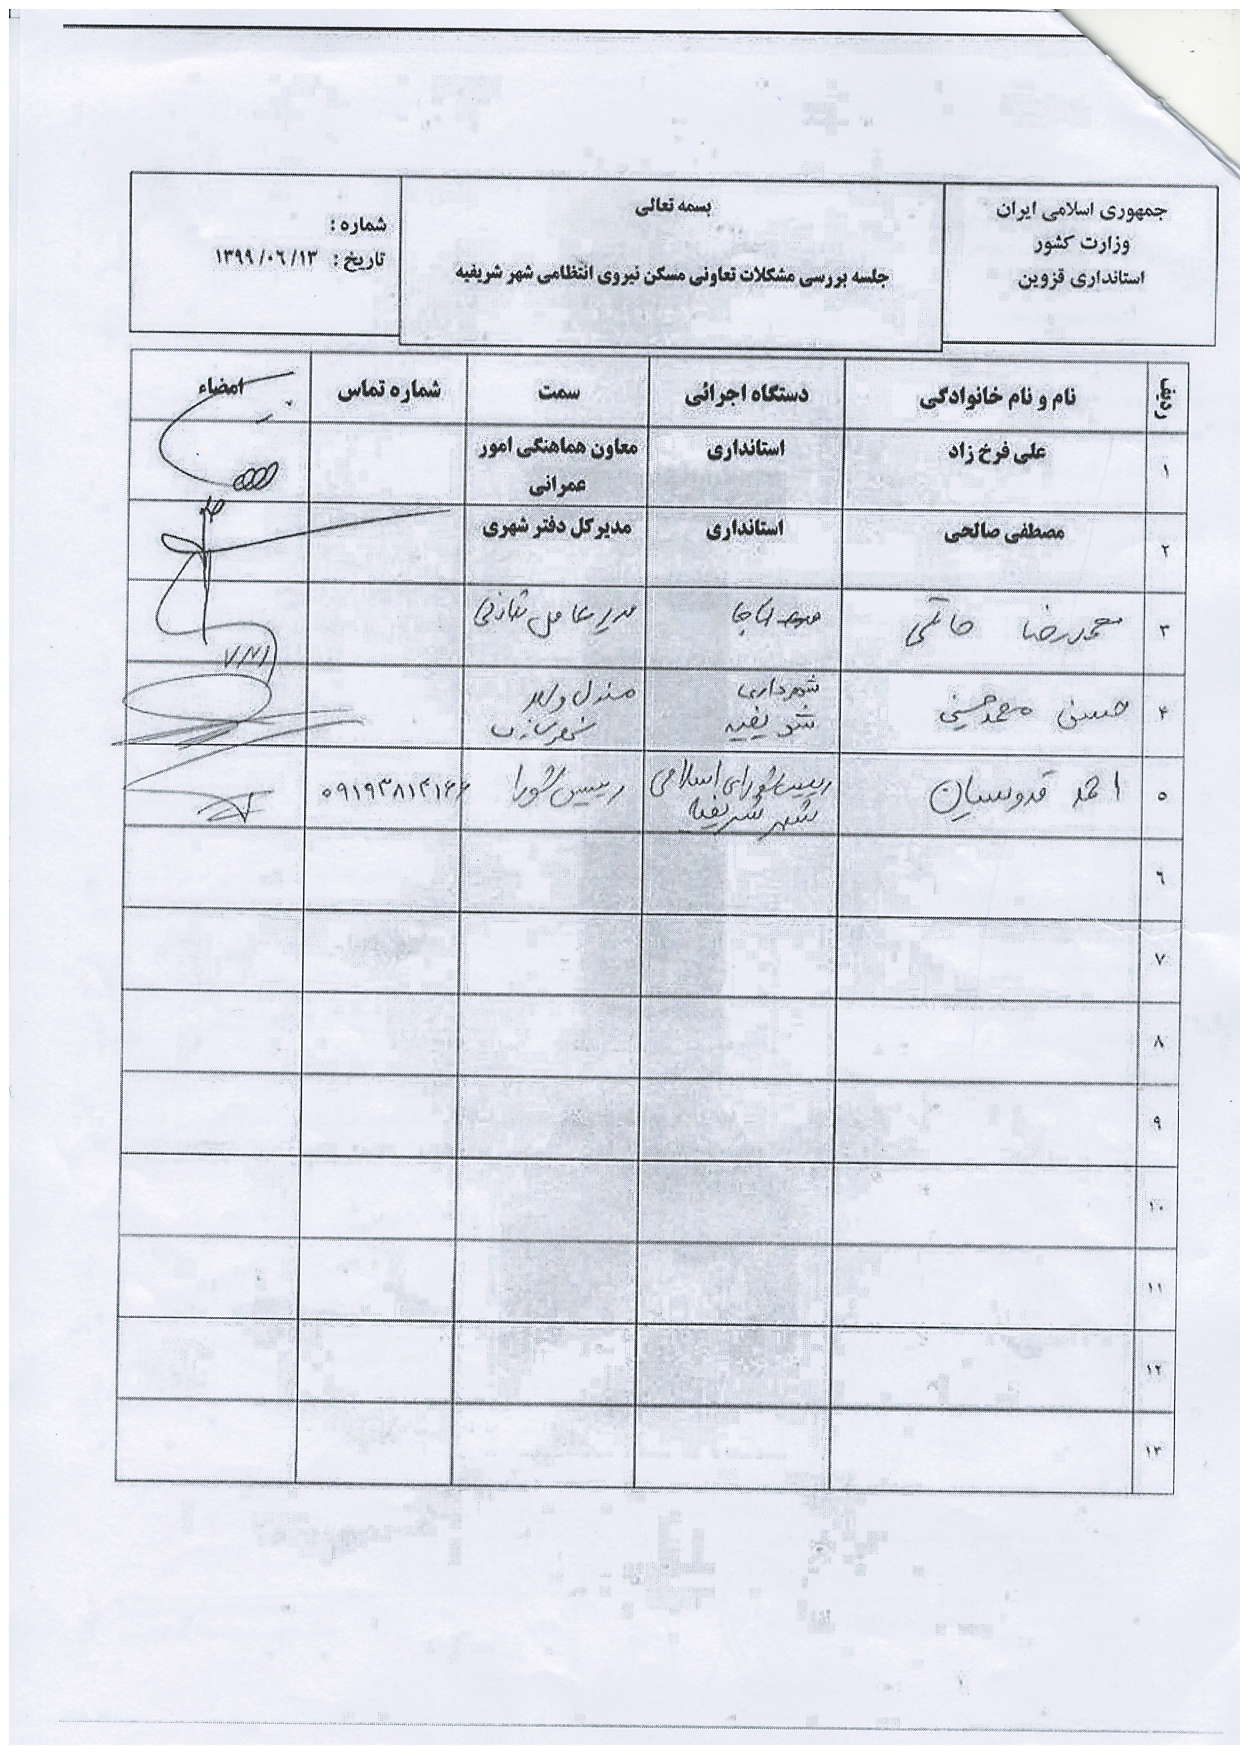 جمهوری اسلامی ایران
وزارت کشور
استانداری قزوین
بسمه تعالی
جلسه بررسی مشکلات تعاونی مسکن نیروی انتظامی شهر شریفیه
شماره :
تاریخ : ۱۳۹۹/۰۶/۱۳
ردیف نام و نام خانوادگی دستگاه اجرائی سمت شماره تماس امضاء
۱ علی فرخ زاد استانداری معاون هماهنگی امور
عمرانی
۲ مصطفی صالحی استانداری مدیرکل دفتر شهری
۳ محمدرضا حاتمی مدیر عامل تعاونی
۴ حسن محمدحسینی شهرداری
شریفیه شهرسازی
۵ احمد قدوسیان رییس شورای اسلامی رییس شورا
شهر شریفیه
۶
۷
۸
۹
۱۰
۱۱
۱۲
۱۳